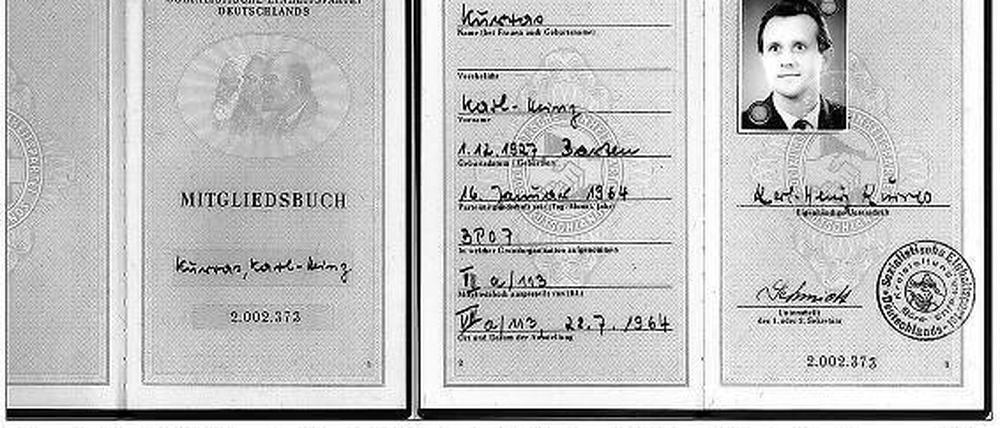 DEUTSCHLANDS
MITGLIEDSBUCH
Kurras, Karl-Heinz
2.002.373
1
Kurras
Name (bei Frauen auch Geburtsname)
Vorname
Karl-Heinz
Vorname
1.12.1927 Barten
Geburtsdatum / Geburtsort
16. Januar 1964
3P07
In welcher Grundorganisation aufgenommen
II a/113
Mitgliedsbuch ausgestellt von
VII a/113, 22.7.1964
Ort und Datum der Ausstellung
2
Karl-Heinz Kurras
Eigenhändige Unterschrift
Schmidt
Unterschrift
des 1. oder 2. Sekretärs
Sozialistische Einheitspartei Deutschlands
2.002.373
3